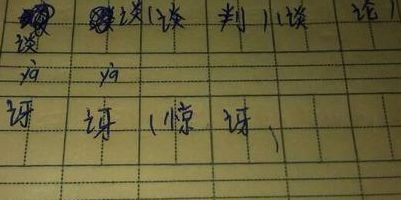 谈 谈(谈判)(谈论)
yà yà
讶 讶(惊讶)